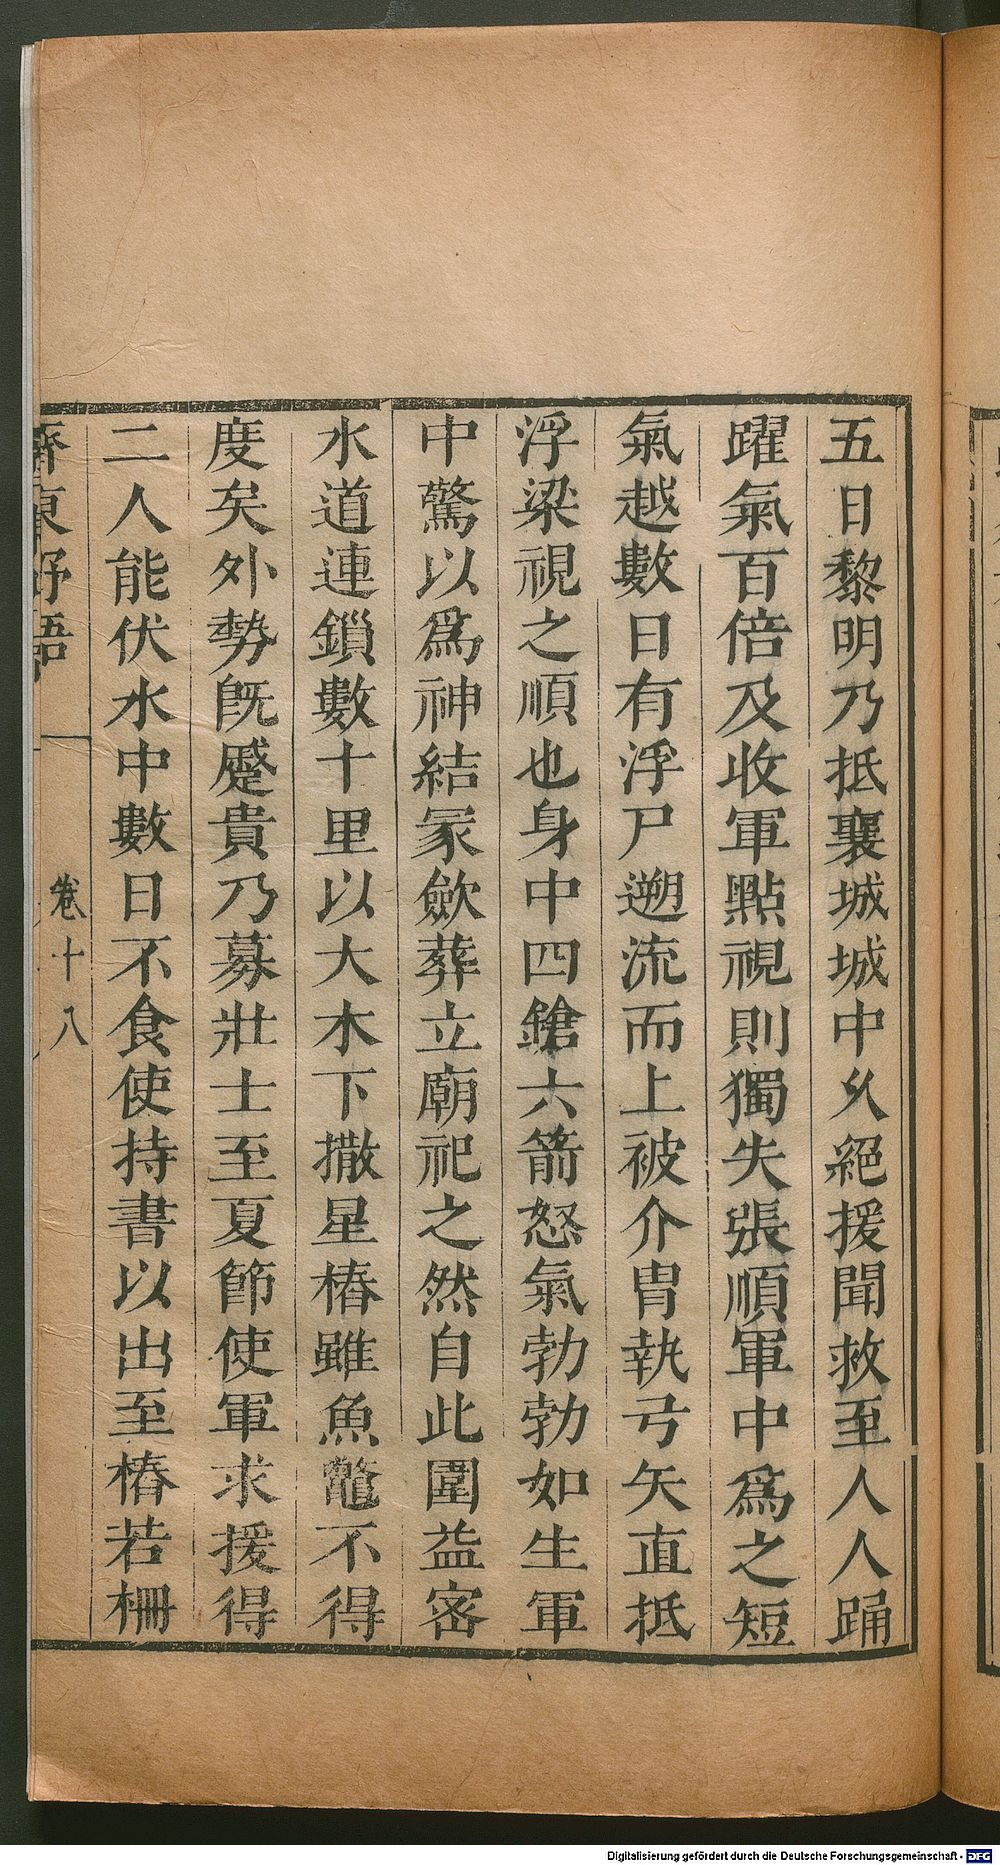 五日黎明乃抵襄城城中乆絕援聞救至人人踊
躍氣百倍及收軍點視則獨失張順軍中爲之短
氣越數日有浮尸遡流而上被介冑執弓矢直抵
浮梁視之順也身中四鎗六箭怒氣勃勃如生軍
中驚以爲神結冢歛葬立廟祀之然自此圍益密
水道連鎖數十里以大木下撒星樁雖魚鼈不得
度矣外勢旣蹙貴乃募壯士至夏節使軍求援得
二人能伏水中數日不食使持書以出至樁若柵
齊東野語
卷十八
Digitalisierung gefördert durch die Deutsche Forschungsgemeinschaft - DFG